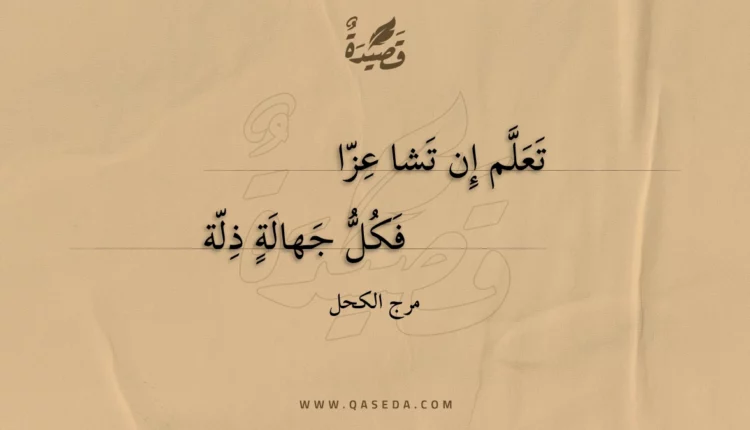 قَصِيدَةٌ
تَعَلَّم إِن تَشا عِزّا
فَكُلُّ جَهالَةٍ ذِلّة
مرج الكحل
WWW.QASEDA.COM